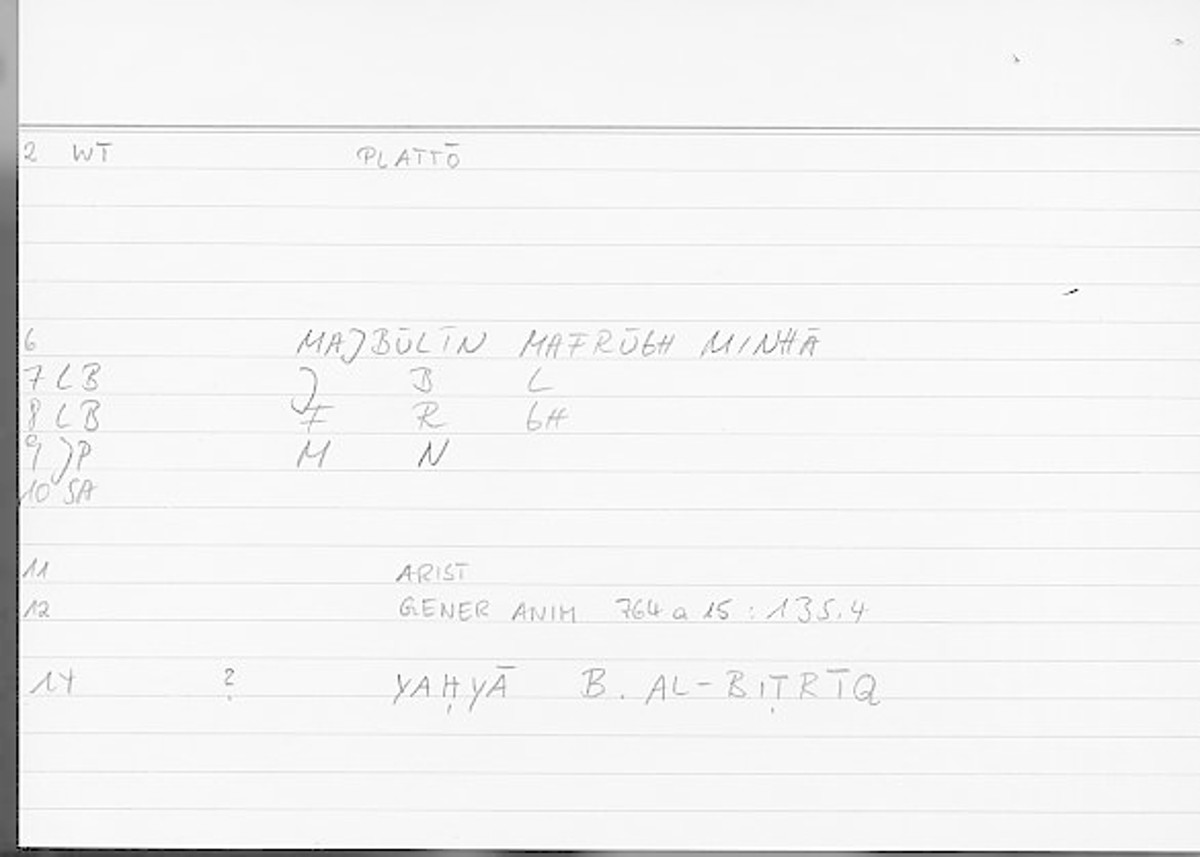 2 WT PLATTŌ
6 MAJBŪLĪN MAFRŪGH MINHĀ
7 LB J B L
8 LB F R GH
9 JP M N
10 SA
11 ARIST
12 GENER ANIM 764 a 15 : 135.4
14 ? YAḤYĀ B. AL-BIṬRĪQ